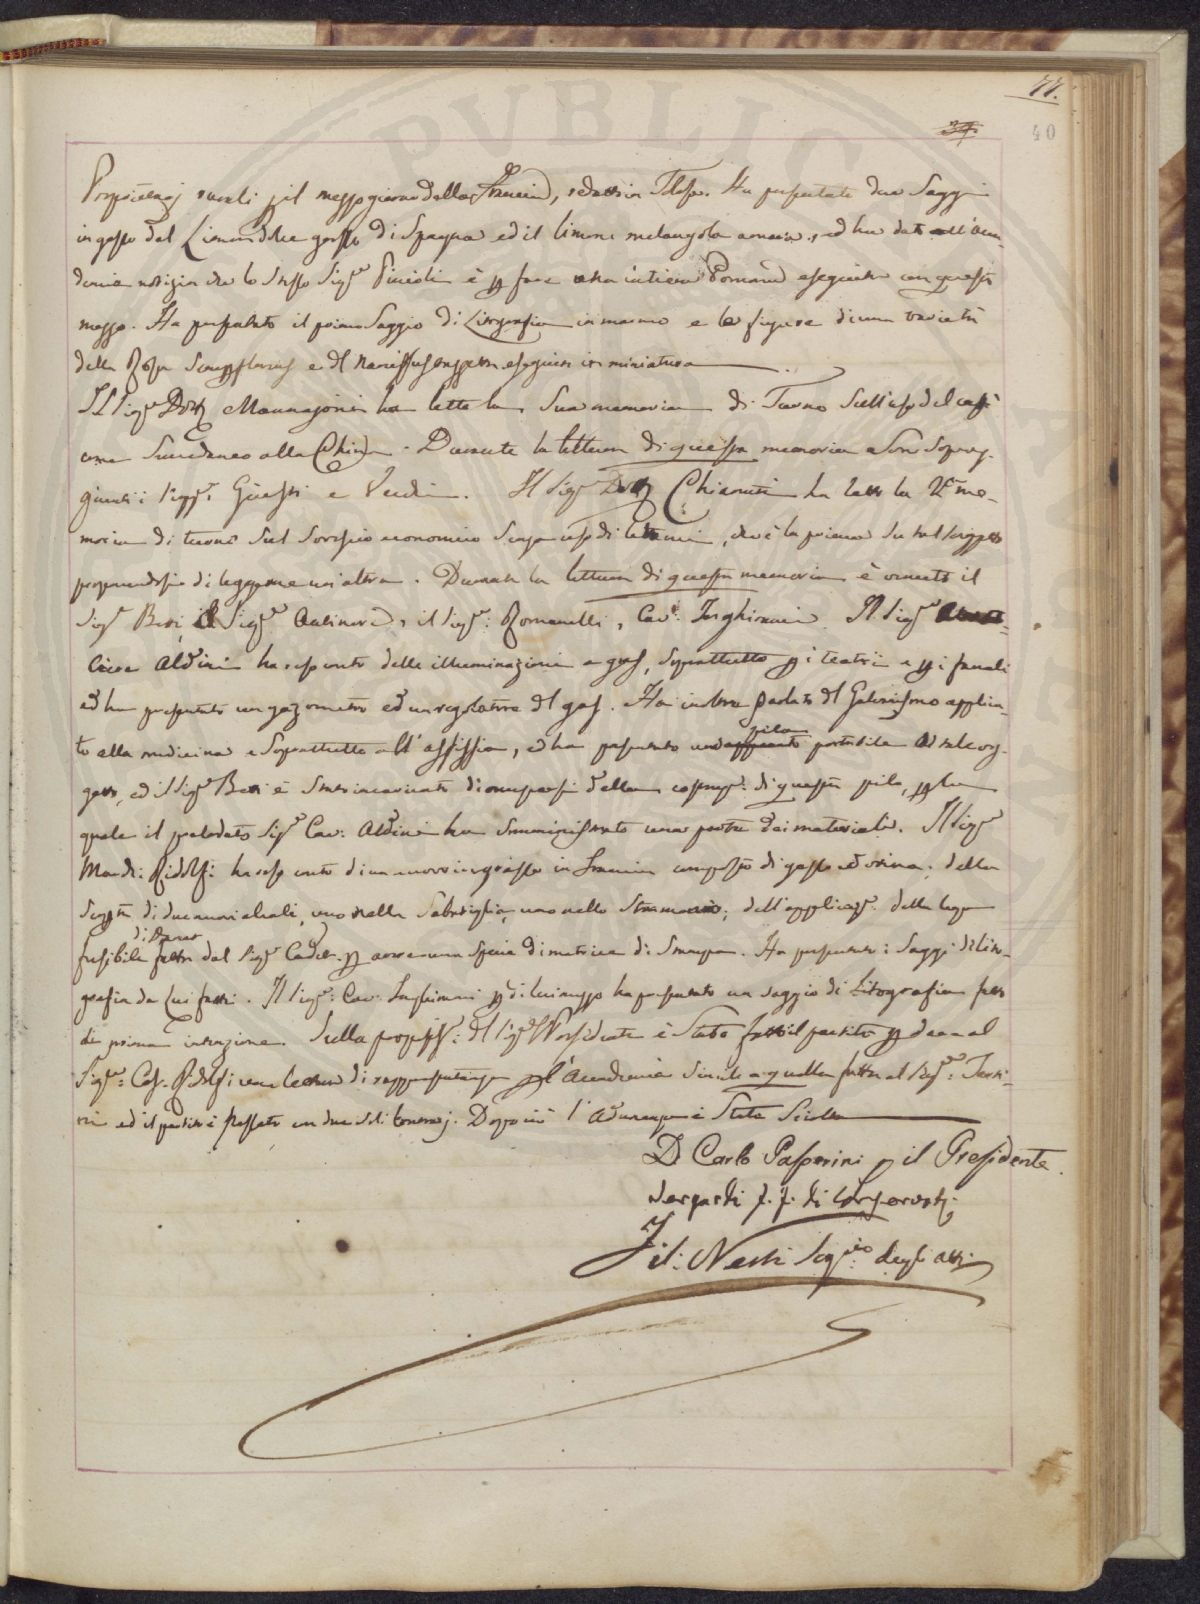 77.
39.
40
rurali p il mezzogiorno della Francia, Ha presentato due Saggi
in gesso del Limon dolce grosso di Spagna ed il limone melangolo ed ha dato all'Acca-
demia notizia che lo stesso Sig.e è p fare una intiera Pomona eseguita con questo
mezzo. Ha presentato il primo Saggio di Litografia in marmo e le figure di una varietà
della Rosa e del eseguite in miniatura
Il Sig.e Dott. ha letto la Sua memoria di Turno Sull'uso del caffè
come Succedaneo alla China. Durante la lettura di questa memoria Son Soprag-
giunti i Sigg.i e Verdi. Il Sig.e Dott. Chiarenti ha letto la 2.a me-
moria di turno Sul Sovescio economico Senza uso di letame, che è la prima Su tal soggetto
proponendosi di leggerne un'altra. Durante la lettura di questa memoria è venuto il
Sig.e Betti, il Sig.e Antinori, il Sig.e: Romanelli, Cav.e: Inghirami. Il Sig.e
Cav.e Aldini ha reso conto della illuminazione a gas, soprattutto p i teatri e p i fanali
ed ha presentato un gazometro ed un regolatore del gas. Ha inoltre parlato del Galvanismo applica-
to alla medicina e Soprattutto all'assissia, ed ha presentato una pila portatile ad tale og-
getto, ed il Sig.e Betti è stato incaricato di occuparsi della costruz.e: di questa pila, p la
quale il prelodato Sig.e Cav: Aldini ha somministrato una parte dei materiali. Il Sig.e
March: Ridolfi ha reso conto di un nuovo ingrasso in Francia composto di gesso ed orina; della
Scoperta di due nuovi alcali, uno nella uno nello Strammonio; dell'applicaz.e: della lega
fusibile di Darcet fatta dal Sig.e Cadet p avere una Specie di matrice di Stampa. Ha presentato i Saggi di Lito-
grafia da Lui fatti. Il Sig.e: Cav: Inghirami p di lui mezzo ha presentato un saggio di Litografia fatto
di prima intenzione. Sulla propos.e: del Sig.e Presidente è Stato fatto il partito p dare al
Sig.e: Cos. Ridolfi una lettera di rappresentanza p l'Accademia simile a quella fatta al Sig.e: Tarti-
ni ed il partito è passato con due soli contrarj. Dopo ciò l'Adunanza è Stata Sciolta
D. Carlo Passerini p il Presidente.
Nespardi f. f. di
Fil: Nesti Seg.rio degli Atti